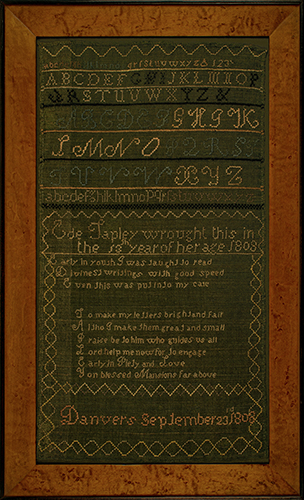 ABCDEFGHIJKLMNOP
QRSTUVWXYZ&
ABCDEFGHIK
LMNOPQRS
TUVWXYZ
abcdefghiklmnopqrst
Ede Tapley wrought this in
the 13th year of her age 1808
Early in youth I was taught to read
Divine writings with good speed
Even this was put into my care
To make my letters bright and fair
Altho I make them great and small
Praise be to him who guides us all
Lord help me now for to engage
Early in Piety and Love
Yon blessed Mansions far above
Danvers September 23 1808